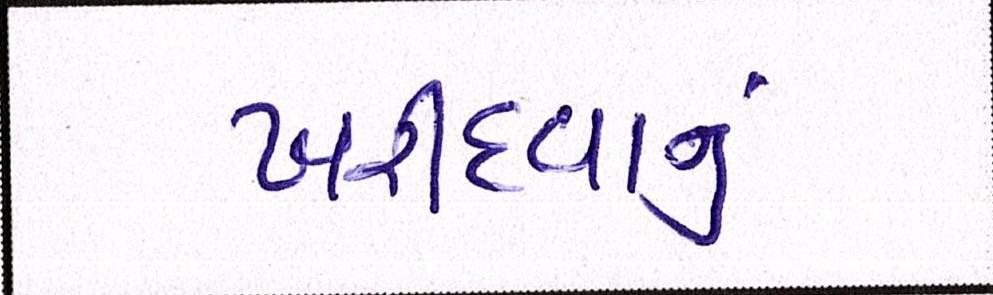 ખરીદવાનું